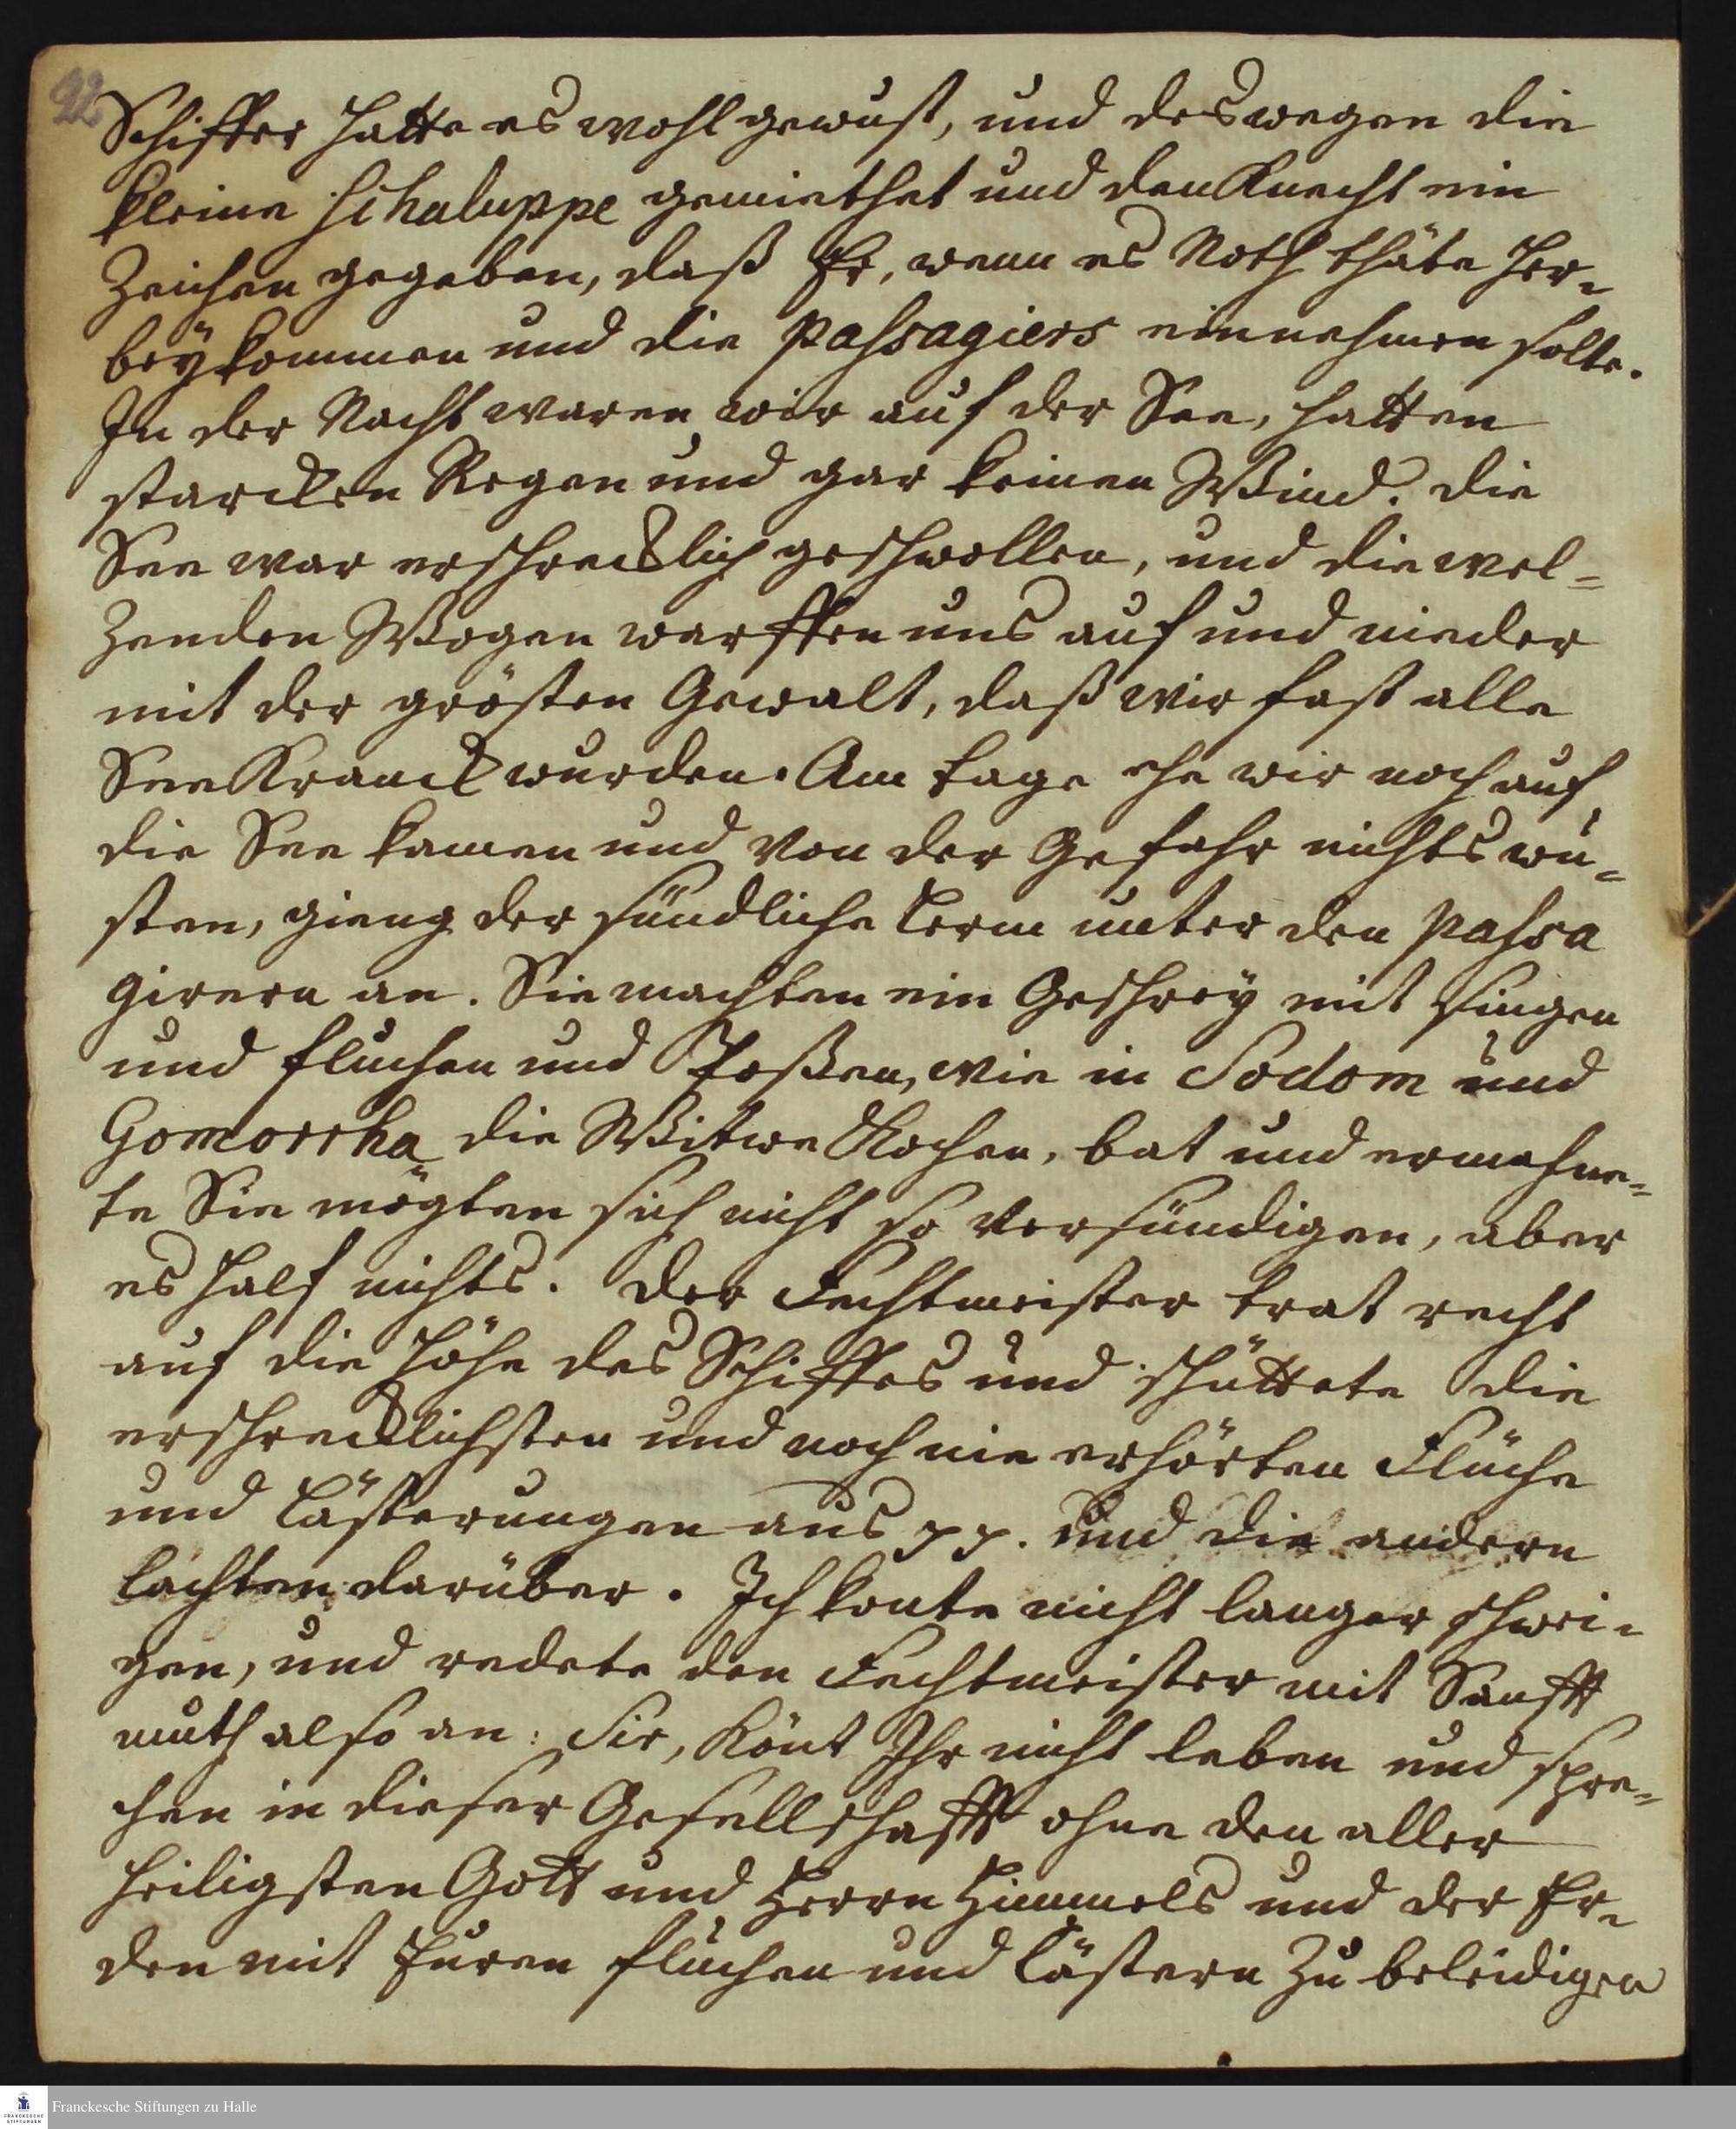 22
Schiffer hatte es wohl gewust, und deswegen die
kleine schaluppe gemiethet und den Knecht ein
Zeichen gegeben, daß Er, wenn es Noth thäte her-
bey kommen und die passagiers einnehmen solte.
In der Nacht waren wir auf der See, hatten
starcken Regen und gar keinen Wind. die
See war erschrecklich geschwollen, und die wel-
zenden Wogen warffen uns auf und nieder
mit der grösten Gewalt, daß wir fast alle
See Kranck wurden. Am tage ehe wir noch auf
die See kamen und von der Gefahr nichts wu-
sten, gieng der sündliche Lerm unter den passa
girern an. Sie machten ein Geschrey mit singen
und fluchen und Possen, wie in Sodom und
Gomorrha die Witwe Kochen, bat und ermahne-
te Sie mögten sich nicht so versündigen, aber
es half nichts. Der Fechtmeister trat recht
auf die Höhe des Schiffes und schüttete die
erschrecklichsten und noch nie erhörten Flüche
und Lästerungen aus pp. und die andern
lachten darüber. Ich konte nicht langer schwei-
gen, und redete den Fechtmeister mit Sanfft
muth also an: Sir, Könt Ihr nicht leben und spre-
chen in dieser Gesellschafft ohne den aller
heiligsten Gott und Herrn Himmels und der Er-
den mit Euren fluchen und Lästern zu beleidigen
Franckesche Stiftungen zu Halle
FRANCKESCHE
STIFTUNGEN